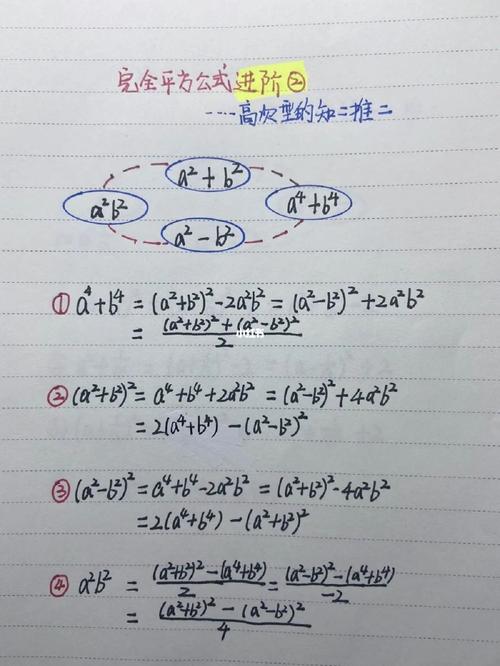 完全平方公式进阶②
····高次型的知二推二
a²+b²
a²b²
a⁴+b⁴
a²-b²
① a⁴+b⁴ = (a²+b²)²-2a²b² = (a²-b²)²+2a²b²
= ((a²+b²)²+(a²-b²)²)/2
② (a²+b²)² = a⁴+b⁴+2a²b² = (a²-b²)²+4a²b²
= 2(a⁴+b⁴)-(a²-b²)²
③ (a²-b²)² = a⁴+b⁴-2a²b² = (a²+b²)²-4a²b²
= 2(a⁴+b⁴)-(a²+b²)²
④ a²b² = ((a²+b²)²-(a⁴+b⁴))/2 = ((a²-b²)²-(a⁴+b⁴))/-2
= ((a²+b²)²-(a²-b²)²)/4